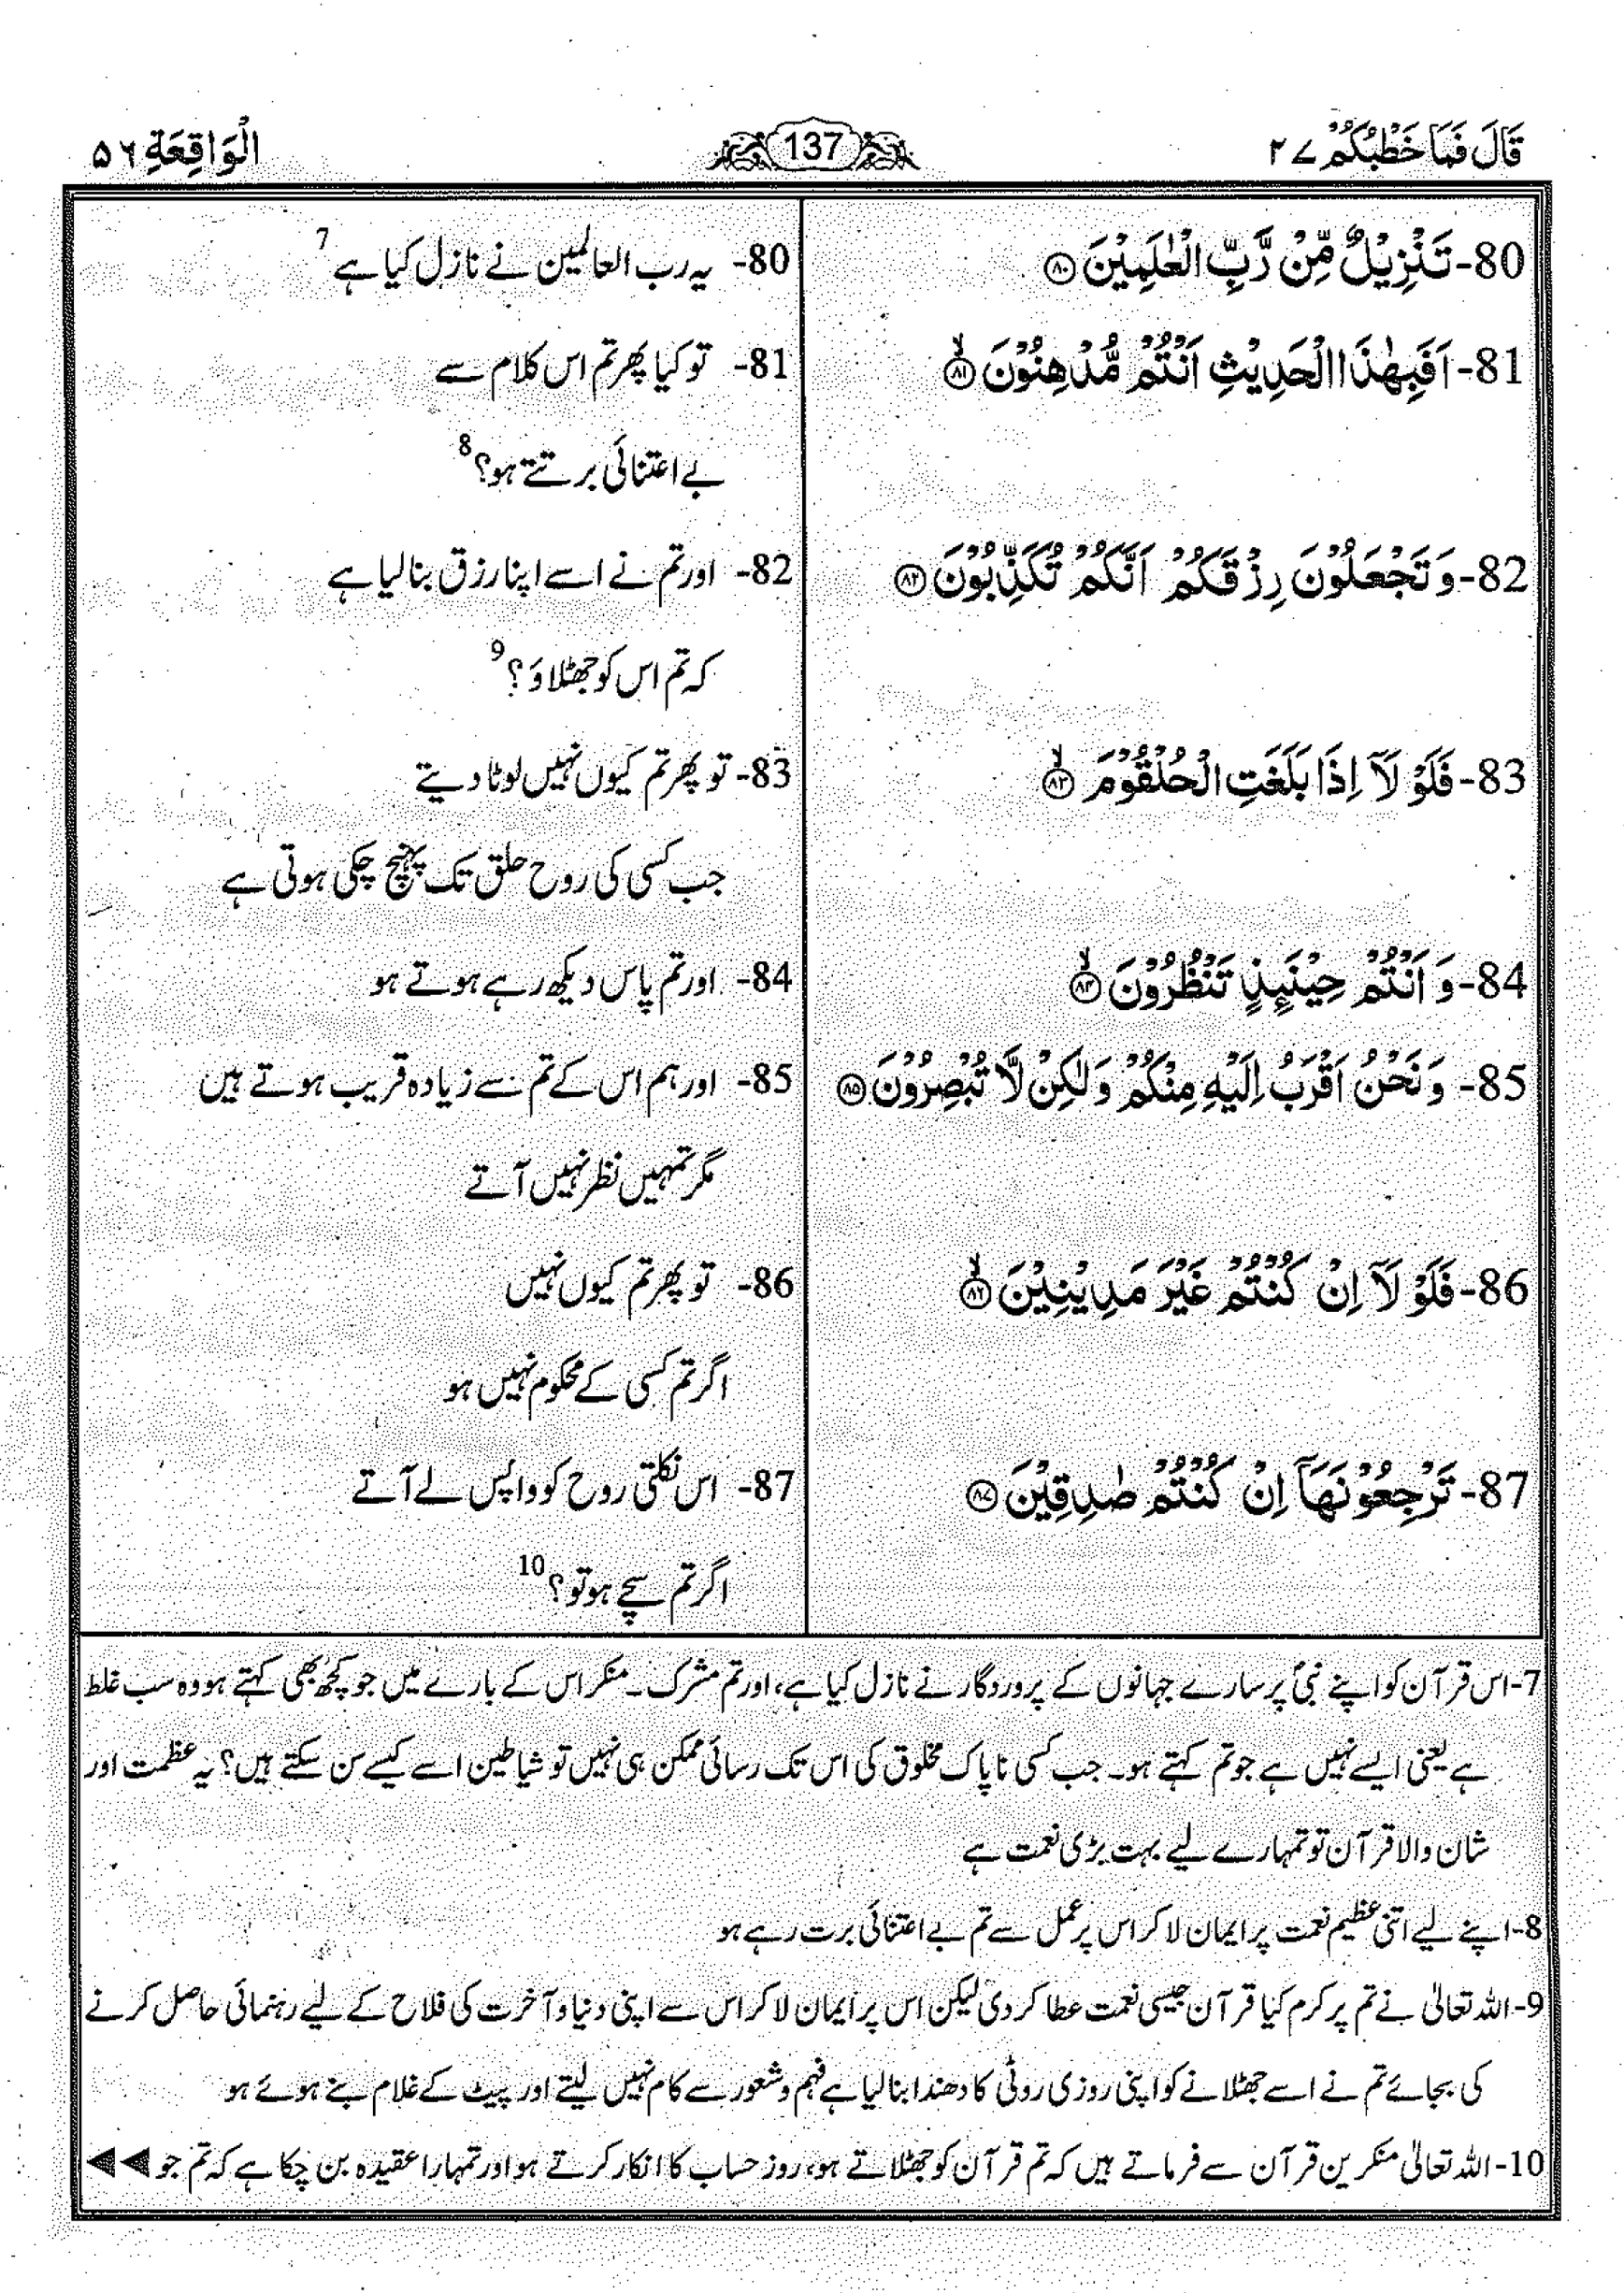 قَالَ فَمَا خَطْبُكُمْ ٢٧
137
الْوَاقِعَةِ ٥٦
80- تَنْزِيْلٌ مِّنْ رَّبِّ الْعٰلَمِيْنَ ﴿٨٠﴾
80- یہ رب العالمین نے نازل کیا ہے 7
81- اَفَبِهٰذَا الْحَدِيْثِ اَنْتُمْ مُّدْهِنُوْنَ ﴿٨١﴾ۙ
81- تو کیا پھر تم اس کلام سے
بے اعتنائی برتتے ہو؟ 8
82- وَ تَجْعَلُوْنَ رِزْقَكُمْ اَنَّكُمْ تُكَذِّبُوْنَ ﴿٨٢﴾
82- اور تم نے اسے اپنا رزق بنا لیا ہے
کہ تم اس کو جھٹلاؤ؟ 9
83- فَلَوْ لَاۤ اِذَا بَلَغَتِ الْحُلْقُوْمَ ﴿٨٣﴾ۙ
83- تو پھر تم کیوں نہیں لوٹا دیتے
جب کسی کی روح حلق تک پہنچ چکی ہوتی ہے
84- وَ اَنْتُمْ حِيْنَىِٕذٍ تَنْظُرُوْنَ ﴿٨٤﴾ۙ
84- اور تم پاس دیکھ رہے ہوتے ہو
85- وَ نَحْنُ اَقْرَبُ اِلَيْهِ مِنْكُمْ وَ لٰكِنْ لَّا تُبْصِرُوْنَ ﴿٨٥﴾
85- اور ہم اس کے تم سے زیادہ قریب ہوتے ہیں
مگر تمہیں نظر نہیں آتے
86- فَلَوْ لَاۤ اِنْ كُنْتُمْ غَيْرَ مَدِيْنِيْنَ ﴿٨٦﴾ۙ
86- تو پھر تم کیوں نہیں
اگر تم کسی کے محکوم نہیں ہو
87- تَرْجِعُوْنَهَاۤ اِنْ كُنْتُمْ صٰدِقِيْنَ ﴿٨٧﴾
87- اس نکلتی روح کو واپس لے آتے
اگر تم سچے ہو تو؟ 10
7- اس قرآن کو اپنے نبیؐ پر سارے جہانوں کے پروردگار نے نازل کیا ہے، اور تم مشرک۔ منکر اس کے بارے میں جو کچھ بھی کہتے ہو وہ سب غلط
ہے یعنی ایسے نہیں ہے جو تم کہتے ہو۔ جب کسی ناپاک مخلوق کی اس تک رسائی ممکن ہی نہیں تو شیاطین اسے کیسے سن سکتے ہیں؟ یہ عظمت اور
شان والا قرآن تو تمہارے لیے بہت بڑی نعمت ہے
8- اپنے لیے اتنی عظیم نعمت پر ایمان لا کر اس پر عمل سے تم بے اعتنائی برت رہے ہو
9- اللہ تعالیٰ نے تم پر کرم کیا قرآن جیسی نعمت عطا کر دی لیکن اس پر ایمان لا کر اس سے اپنی دنیا و آخرت کی فلاح کے لیے رہنمائی حاصل کرنے
کی بجائے تم نے اسے جھٹلانے کو اپنی روزی روٹی کا دھندا بنا لیا ہے فہم و شعور سے کام نہیں لیتے اور پیٹ کے غلام بنے ہوئے ہو
10- اللہ تعالیٰ منکرین قرآن سے فرماتے ہیں کہ تم قرآن کو جھٹلاتے ہو، روز حساب کا انکار کرتے ہو اور تمہارا عقیدہ بن چکا ہے کہ تم جو ◀◀